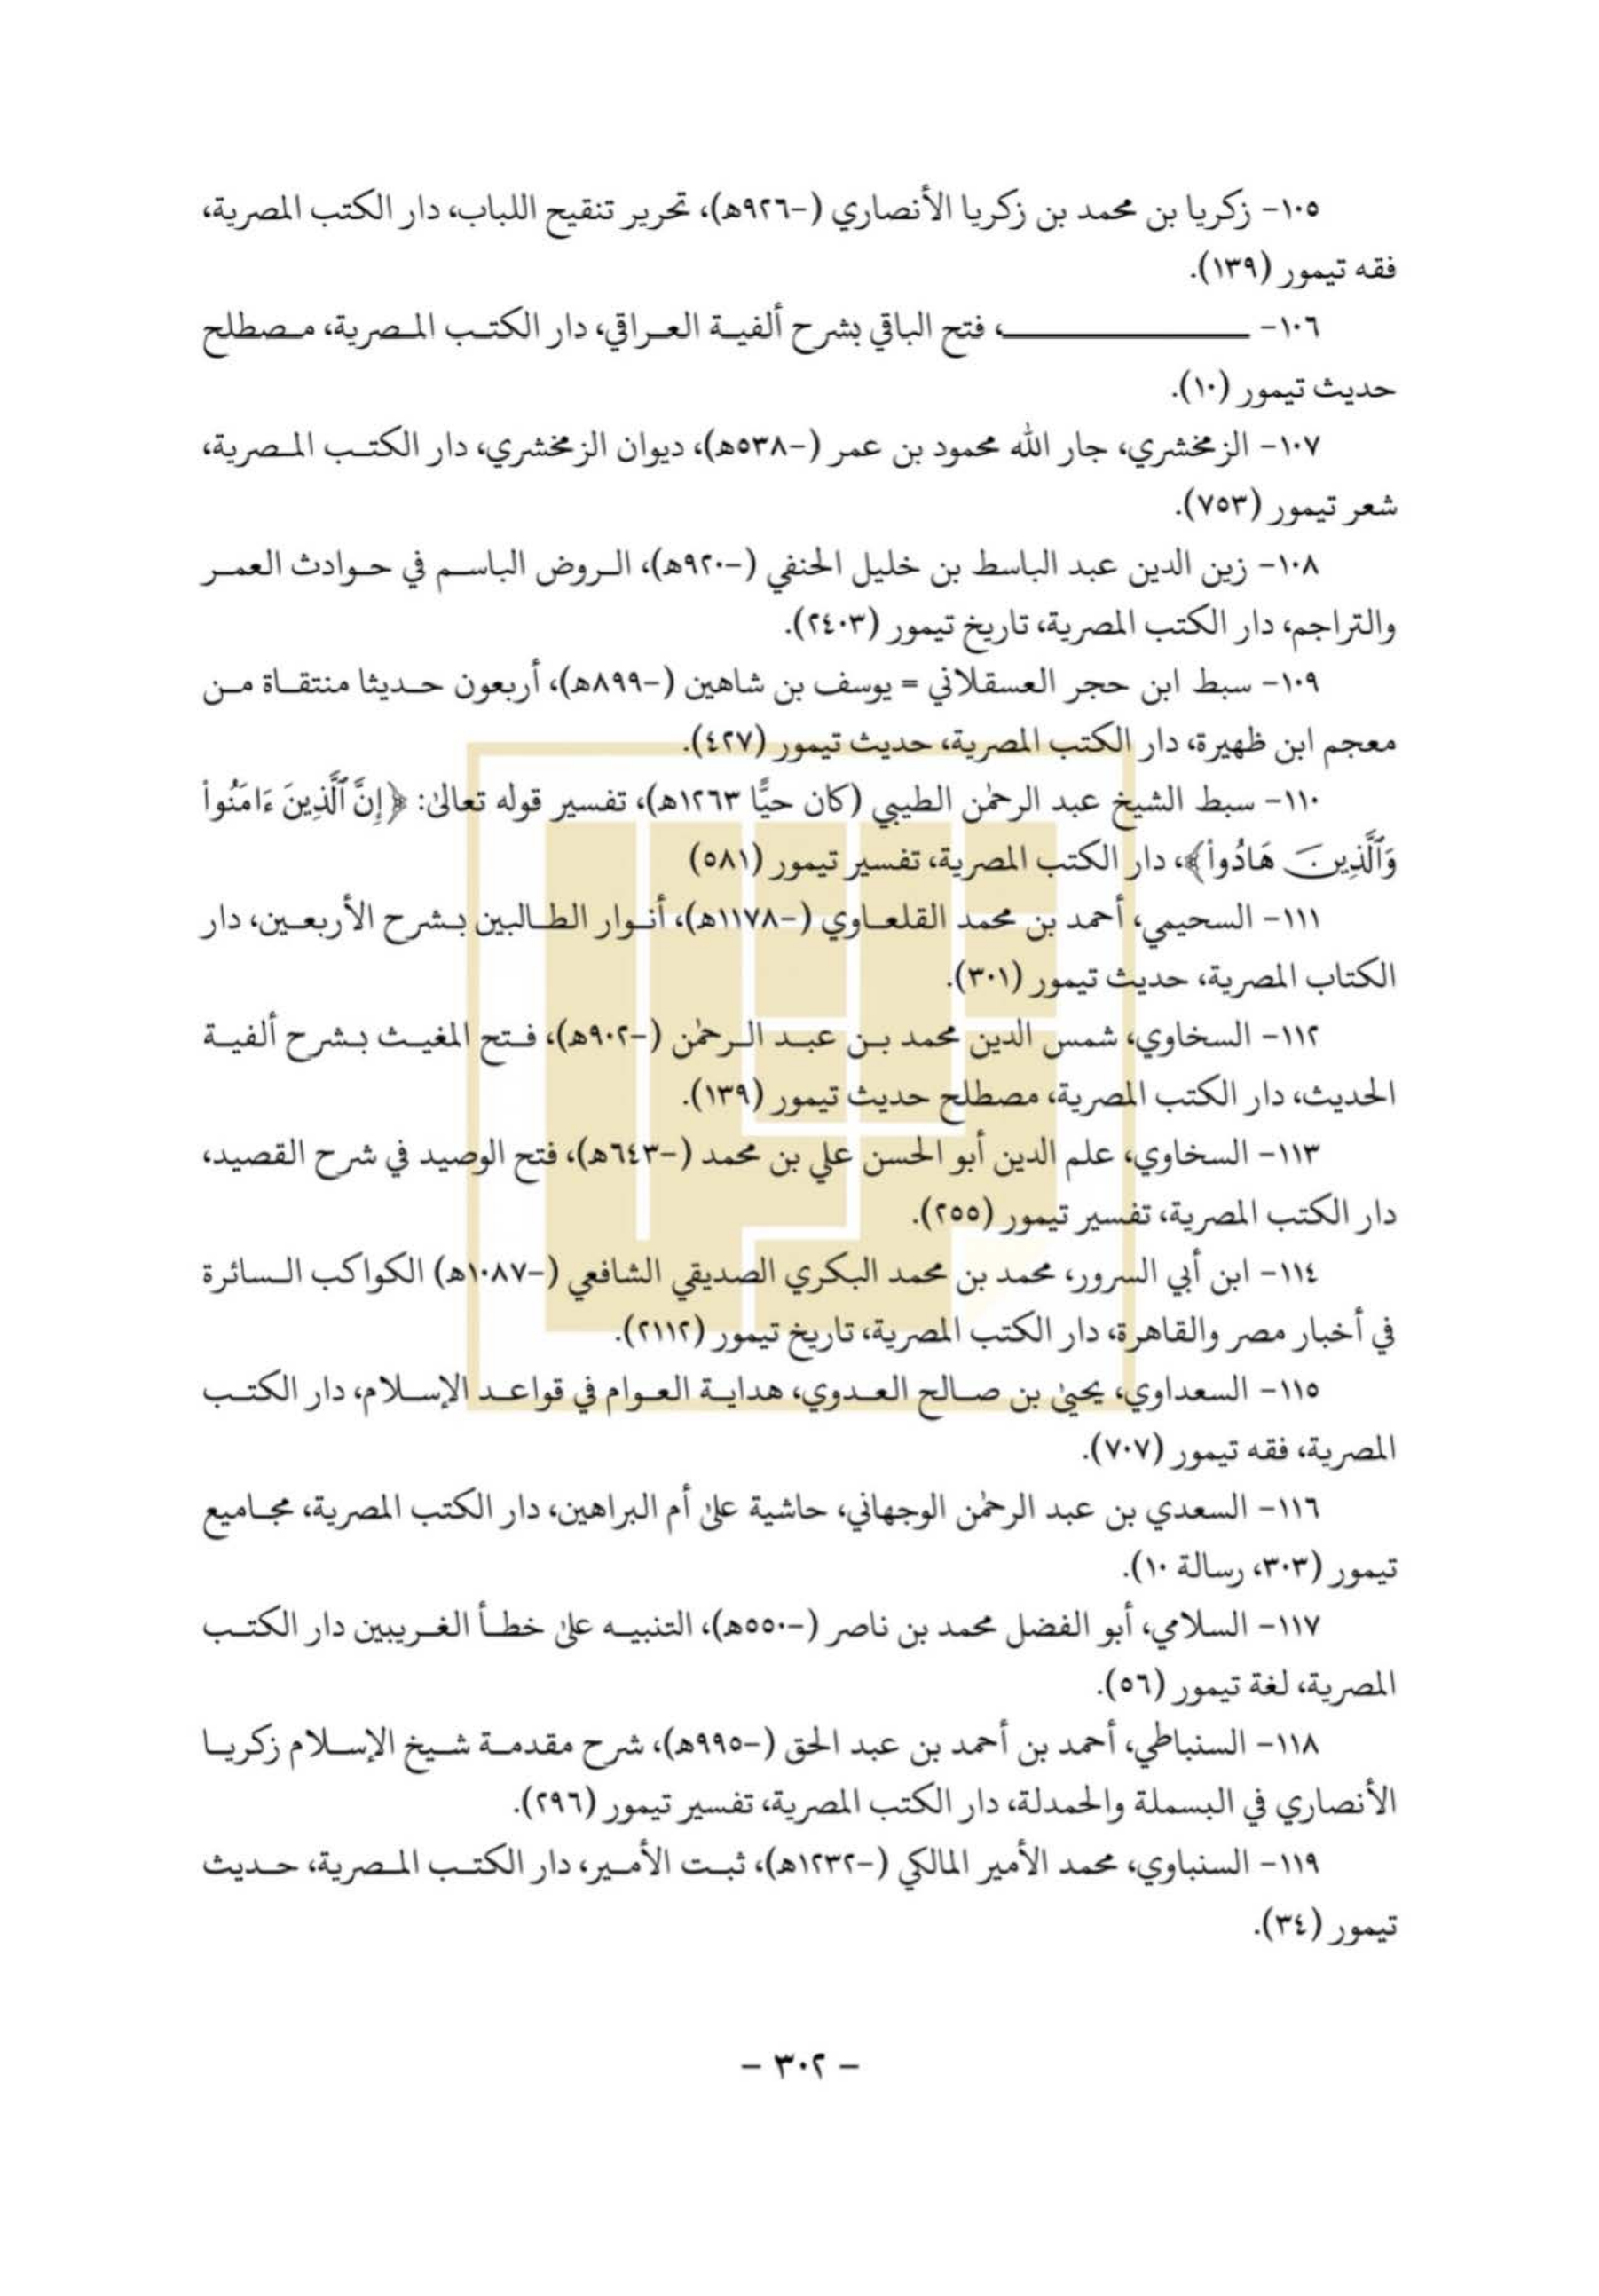 ١٠٥- زكريا بن محمد بن زكريا الأنصاري (-٩٢٦ه)، تحرير تنقيح اللباب، دار الكتب المصرية،
فقه تيمور (١٣٩).
١٠٦- ــــــــــــــــــــــــ، فتح الباقي بشرح ألفية العراقي، دار الكتب المصرية، مصطلح
حديث تيمور (١٠).
١٠٧- الزمخشري، جار الله محمود بن عمر (-٥٣٨ه)، ديوان الزمخشري، دار الكتب المصرية،
شعر تيمور (٧٥٣).
١٠٨- زين الدين عبد الباسط بن خليل الحنفي (-٩٢٠ه)، الروض الباسم في حوادث العمر
والتراجم، دار الكتب المصرية، تاريخ تيمور (٢٤٠٣).
١٠٩- سبط ابن حجر العسقلاني = يوسف بن شاهين (-٨٩٩ه)، أربعون حديثا منتقاة من
معجم ابن ظهيرة، دار الكتب المصرية، حديث تيمور (٤٢٧).
١١٠- سبط الشيخ عبد الرحمٰن الطيبي (كان حيًّا ١٢٦٣ه)، تفسير قوله تعالىٰ: ﴿إِنَّ ٱلَّذِينَ ءَامَنُواْ
وَٱلَّذِينَ هَادُواْ﴾، دار الكتب المصرية، تفسير تيمور (٥٨١)
١١١- السحيمي، أحمد بن محمد القلعاوي (-١١٧٨ه)، أنوار الطالبين بشرح الأربعين، دار
الكتاب المصرية، حديث تيمور (٣٠١).
١١٢- السخاوي، شمس الدين محمد بن عبد الرحمٰن (-٩٠٢ه)، فتح المغيث بشرح ألفية
الحديث، دار الكتب المصرية، مصطلح حديث تيمور (١٣٩).
١١٣- السخاوي، علم الدين أبو الحسن علي بن محمد (-٦٤٣ه)، فتح الوصيد في شرح القصيد،
دار الكتب المصرية، تفسير تيمور (٢٥٥).
١١٤- ابن أبي السرور، محمد بن محمد البكري الصديقي الشافعي (-١٠٨٧ه) الكواكب السائرة
في أخبار مصر والقاهرة، دار الكتب المصرية، تاريخ تيمور (٢١١٢).
١١٥- السعداوي، يحيىٰ بن صالح العدوي، هداية العوام في قواعد الإسلام، دار الكتب
المصرية، فقه تيمور (٧٠٧).
١١٦- السعدي بن عبد الرحمٰن الوجهاني، حاشية علىٰ أم البراهين، دار الكتب المصرية، مجاميع
تيمور (٣٠٣، رسالة ١٠).
١١٧- السلامي، أبو الفضل محمد بن ناصر (-٥٥٠ه)، التنبيه علىٰ خطأ الغريبين دار الكتب
المصرية، لغة تيمور (٥٦).
١١٨- السنباطي، أحمد بن أحمد بن عبد الحق (-٩٩٥ه)، شرح مقدمة شيخ الإسلام زكريا
الأنصاري في البسملة والحمدلة، دار الكتب المصرية، تفسير تيمور (٢٩٦).
١١٩- السنباوي، محمد الأمير المالكي (-١٢٣٢ه)، ثبت الأمير، دار الكتب المصرية، حديث
تيمور (٣٤).
- ٣٠٢ -